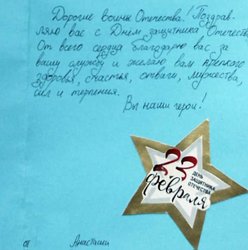 Дорогие воины Отечества! Поздрав-
ляю вас с Днём защитника Отечества
От всего сердца благодарю вас за
вашу службу и желаю вам крепкого
здоровья, счастья, отваги, мужества,
сил и терпения.
Вы наши герои!
23
ДЕНЬ
ЗАЩИТНИКА
ОТЕЧЕСТВА
февраля
от